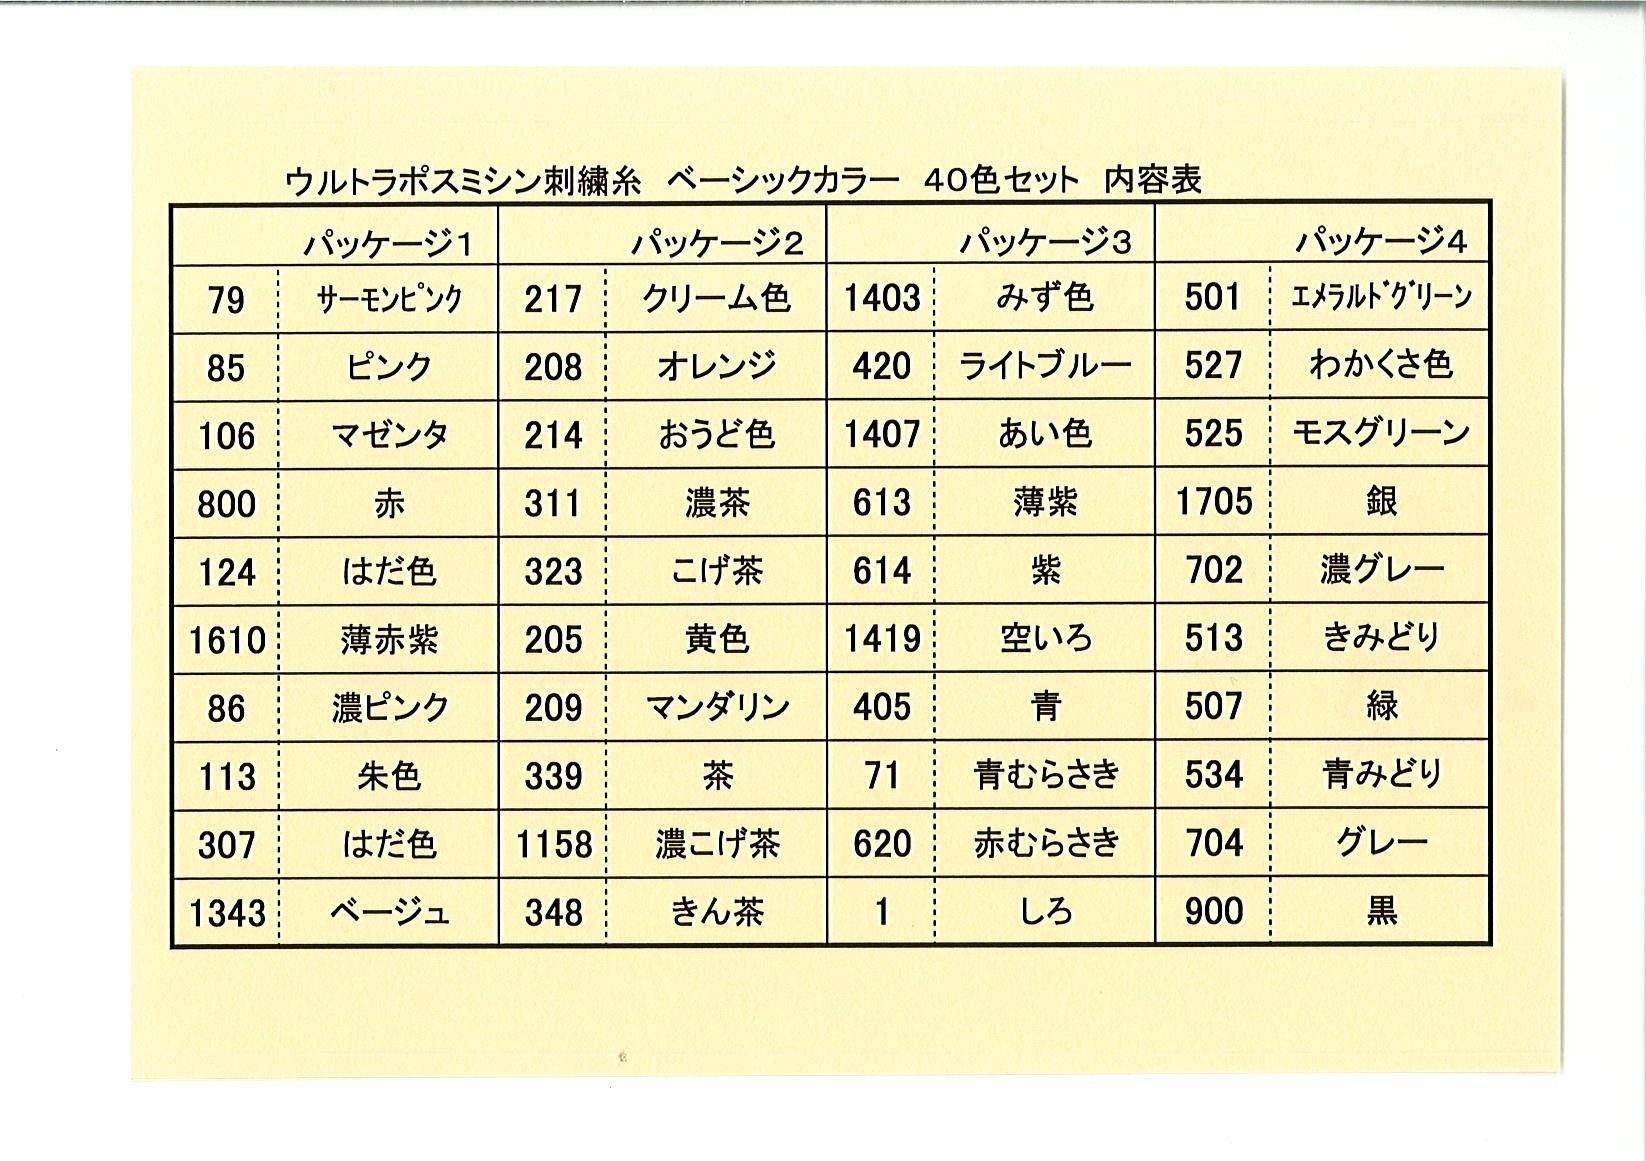 ウルトラポスミシン刺繍糸 ベーシックカラー 40色セット 内容表
パッケージ1 パッケージ2 パッケージ3 パッケージ4
79 サーモンピンク 217 クリーム色 1403 みず色 501 エメラルドグリーン
85 ピンク 208 オレンジ 420 ライトブルー 527 わかくさ色
106 マゼンタ 214 おうど色 1407 あい色 525 モスグリーン
800 赤 311 濃茶 613 薄紫 1705 銀
124 はだ色 323 こげ茶 614 紫 702 濃グレー
1610 薄赤紫 205 黄色 1419 空いろ 513 きみどり
86 濃ピンク 209 マンダリン 405 青 507 緑
113 朱色 339 茶 71 青むらさき 534 青みどり
307 はだ色 1158 濃こげ茶 620 赤むらさき 704 グレー
1343 ベージュ 348 きん茶 1 しろ 900 黒